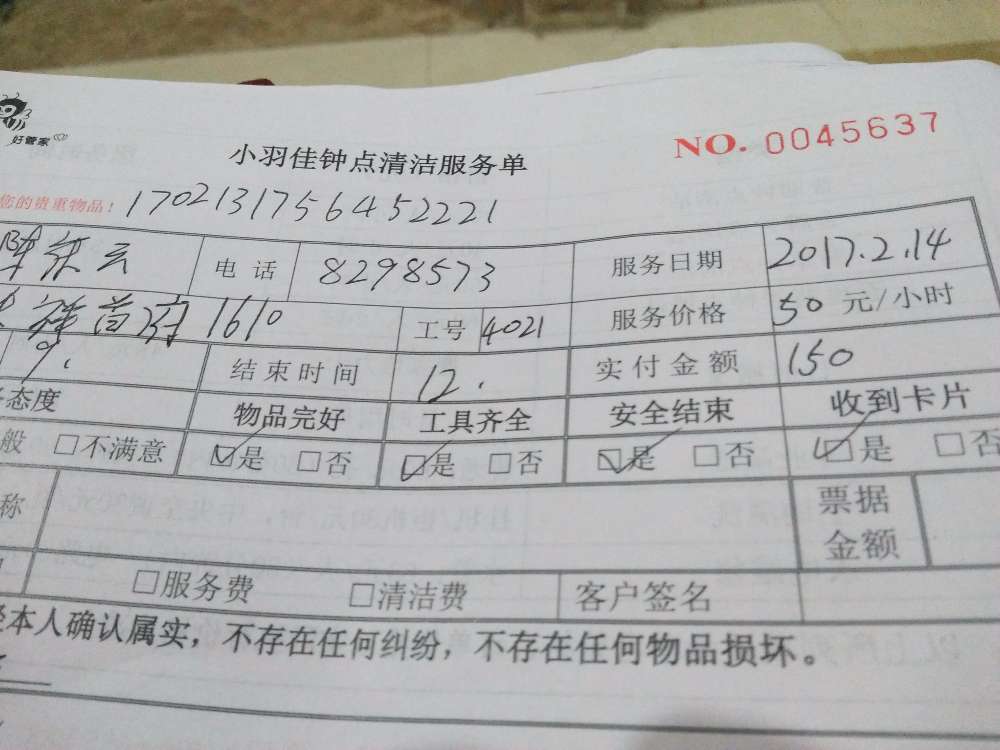 好管家
小羽佳钟点清洁服务单 NO. 0045637
您的贵重物品! 1702131756452221
电话 8298573 服务日期 2017.2.14
首府1610 工号 4021 服务价格 50 元/小时
9. 结束时间 12. 实付金额 150
态度 物品完好 工具齐全 安全结束 收到卡片
般 □不满意 ☑是 □否 ☑是 □否 ☑是 □否 ☑是 □否
称 票据金额
□服务费 □清洁费 客户签名
本人确认属实，不存在任何纠纷，不存在任何物品损坏。